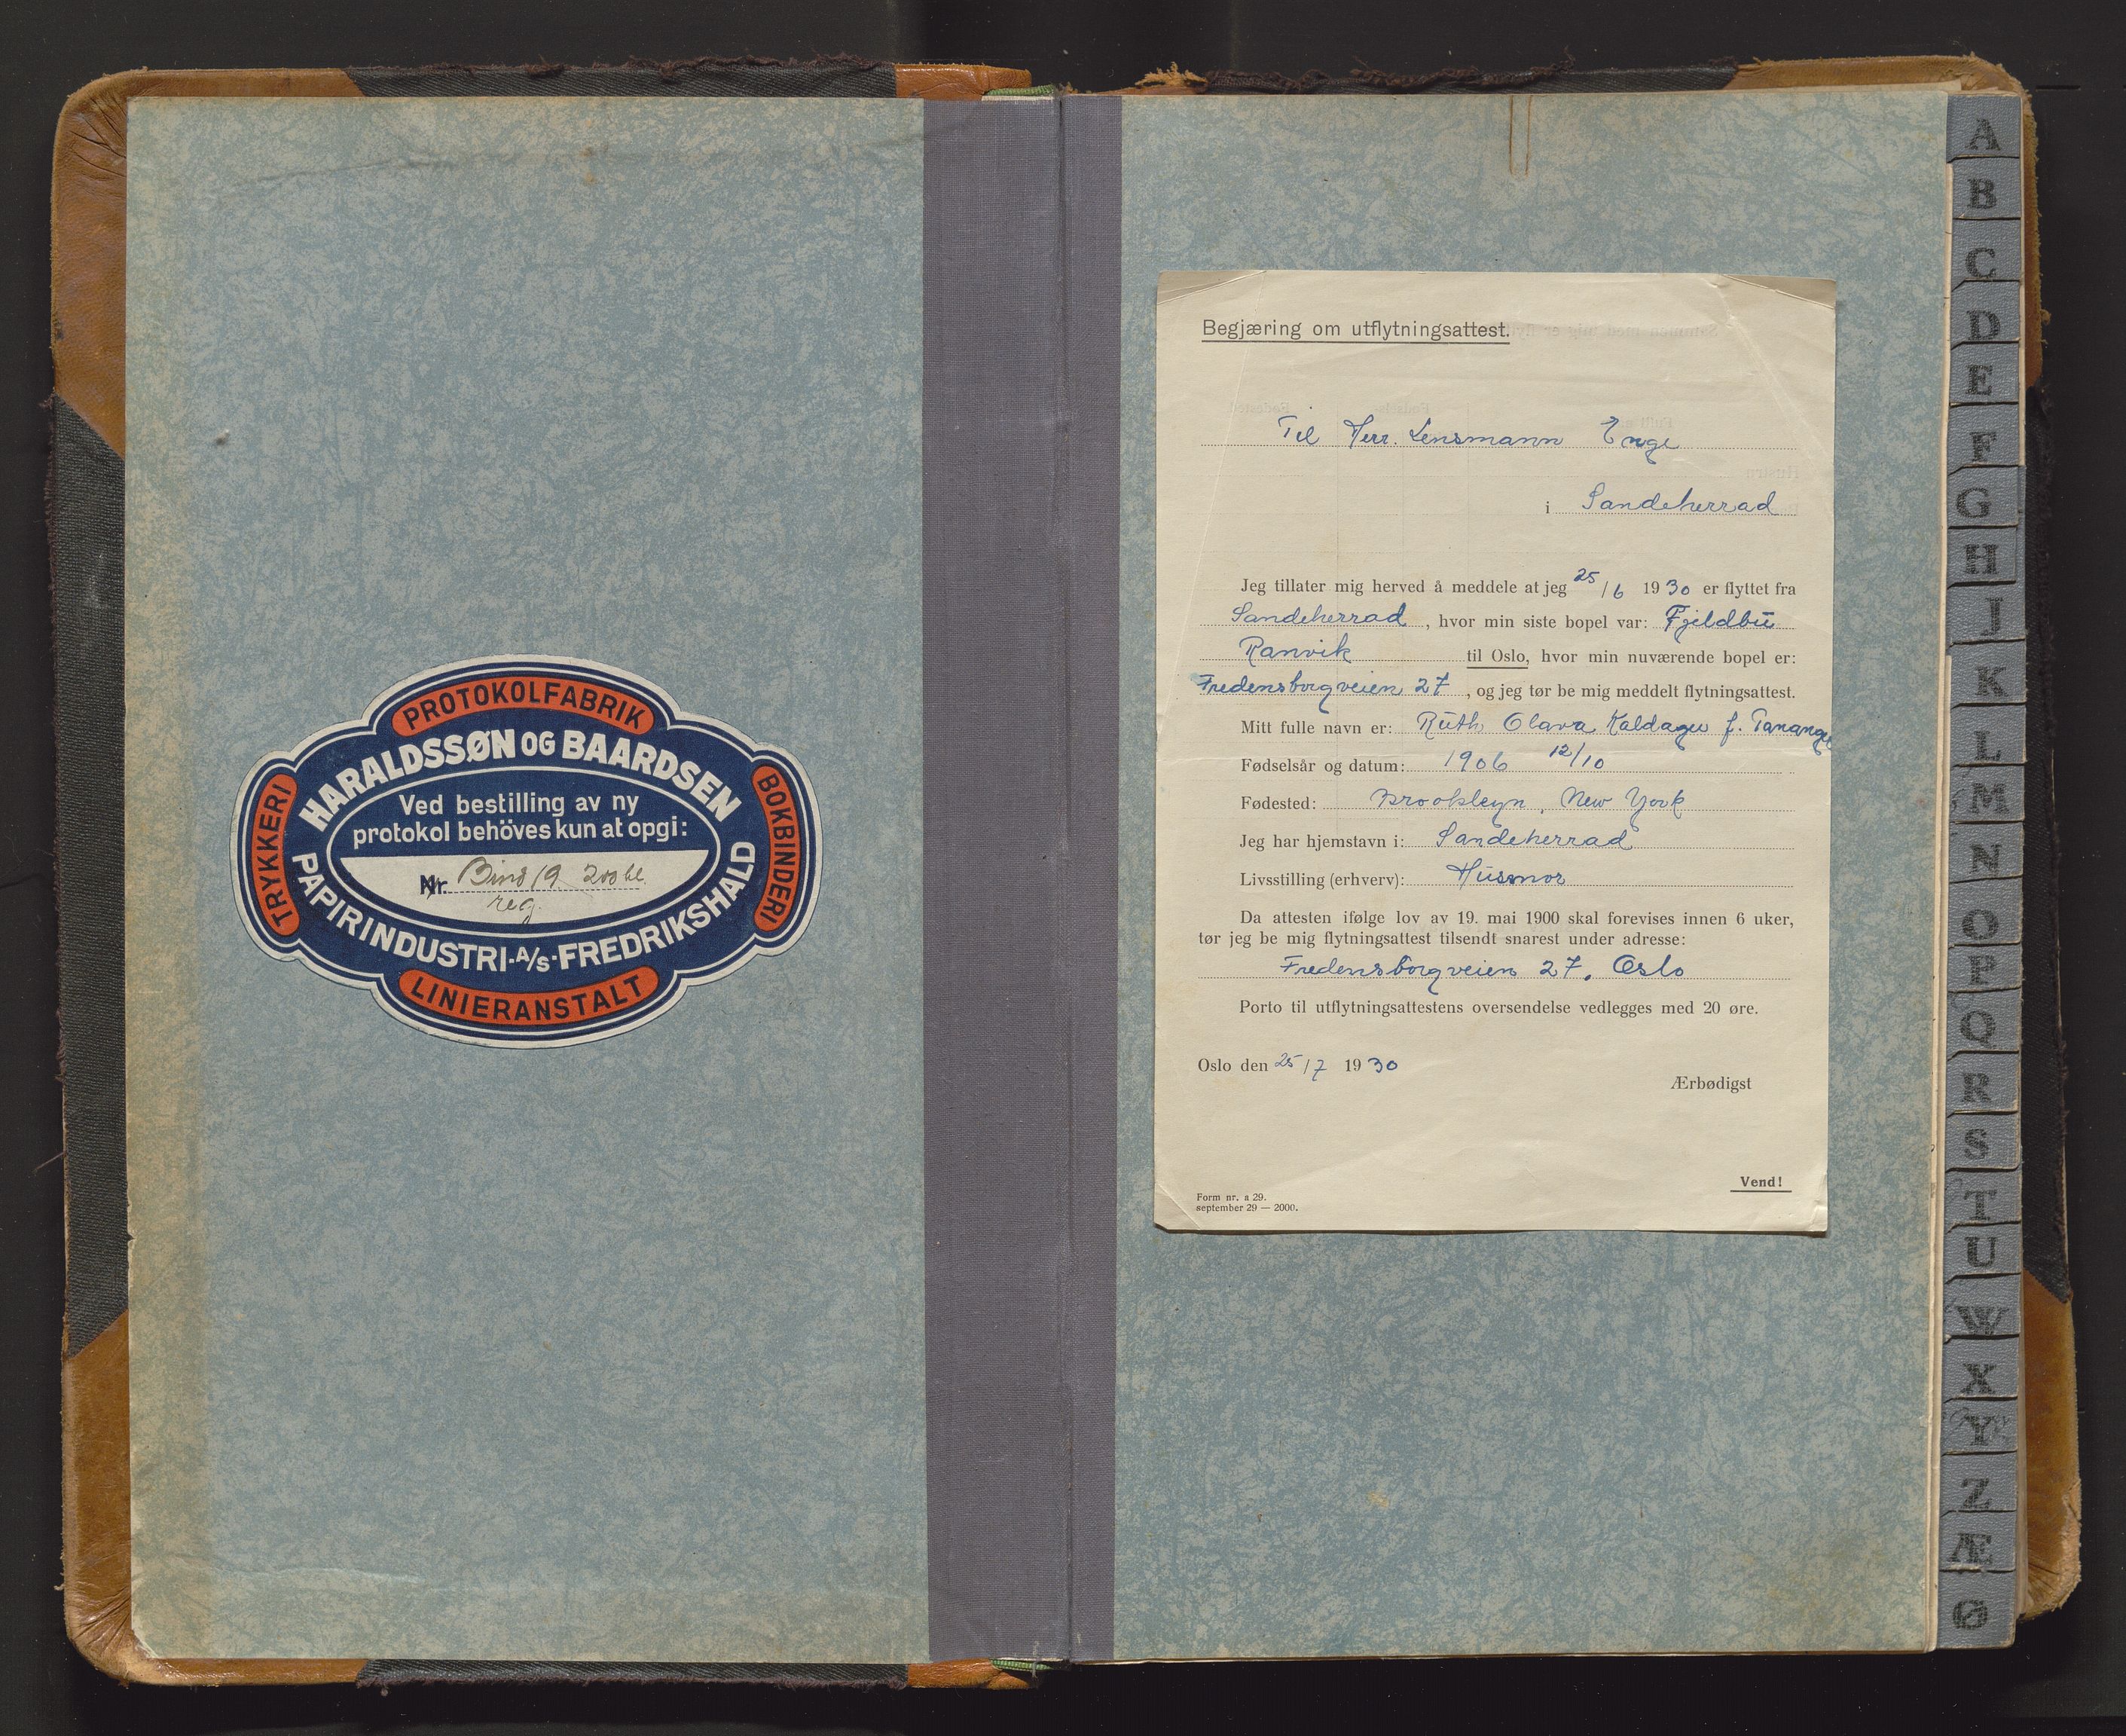 PROTOKOLFABRIK
HARALDSSØN OG BAARDSEN
TRYKKERI
BOKBINDERI
Ved bestilling av ny
protokol behöves kun at opgi:
Nr. Bind 19 200 bl.
reg.
PAPIRINDUSTRI-A/S-FREDRIKSHALD
LINIERANSTALT
Begjæring om utflytningsattest.
Til Herr. Lensmann Enge
i Sandeherrad
Jeg tillater mig herved å meddele at jeg 25/6 1930 er flyttet fra
Sandeherrad, hvor min siste bopel var: Fjeldbu
Ranvik til Oslo, hvor min nuværende bopel er:
Fredensborgveien 27, og jeg tør be mig meddelt flytningsattest.
Mitt fulle navn er: Ruth Olava Kaldager f. Tananger
Fødselsår og datum: 1906 12/10
Fødested: Brookleyn, New York
Jeg har hjemstavn i: Sandeherrad
Livsstilling (erhverv): Husmor
Da attesten ifølge lov av 19. mai 1900 skal forevises innen 6 uker,
tør jeg be mig flytningsattest tilsendt snarest under adresse:
Fredensborgveien 27, Oslo
Porto til utflytningsattestens oversendelse vedlegges med 20 øre.
Oslo den 25/7 1930
Ærbødigst
Vend!
Form nr. a 29.
september 29 — 2000.
A
B
C
D
E
F
G
H
I
K
L
M
N
O
P
Q
R
S
T
U
W
X
Y
Z
Æ
Ø